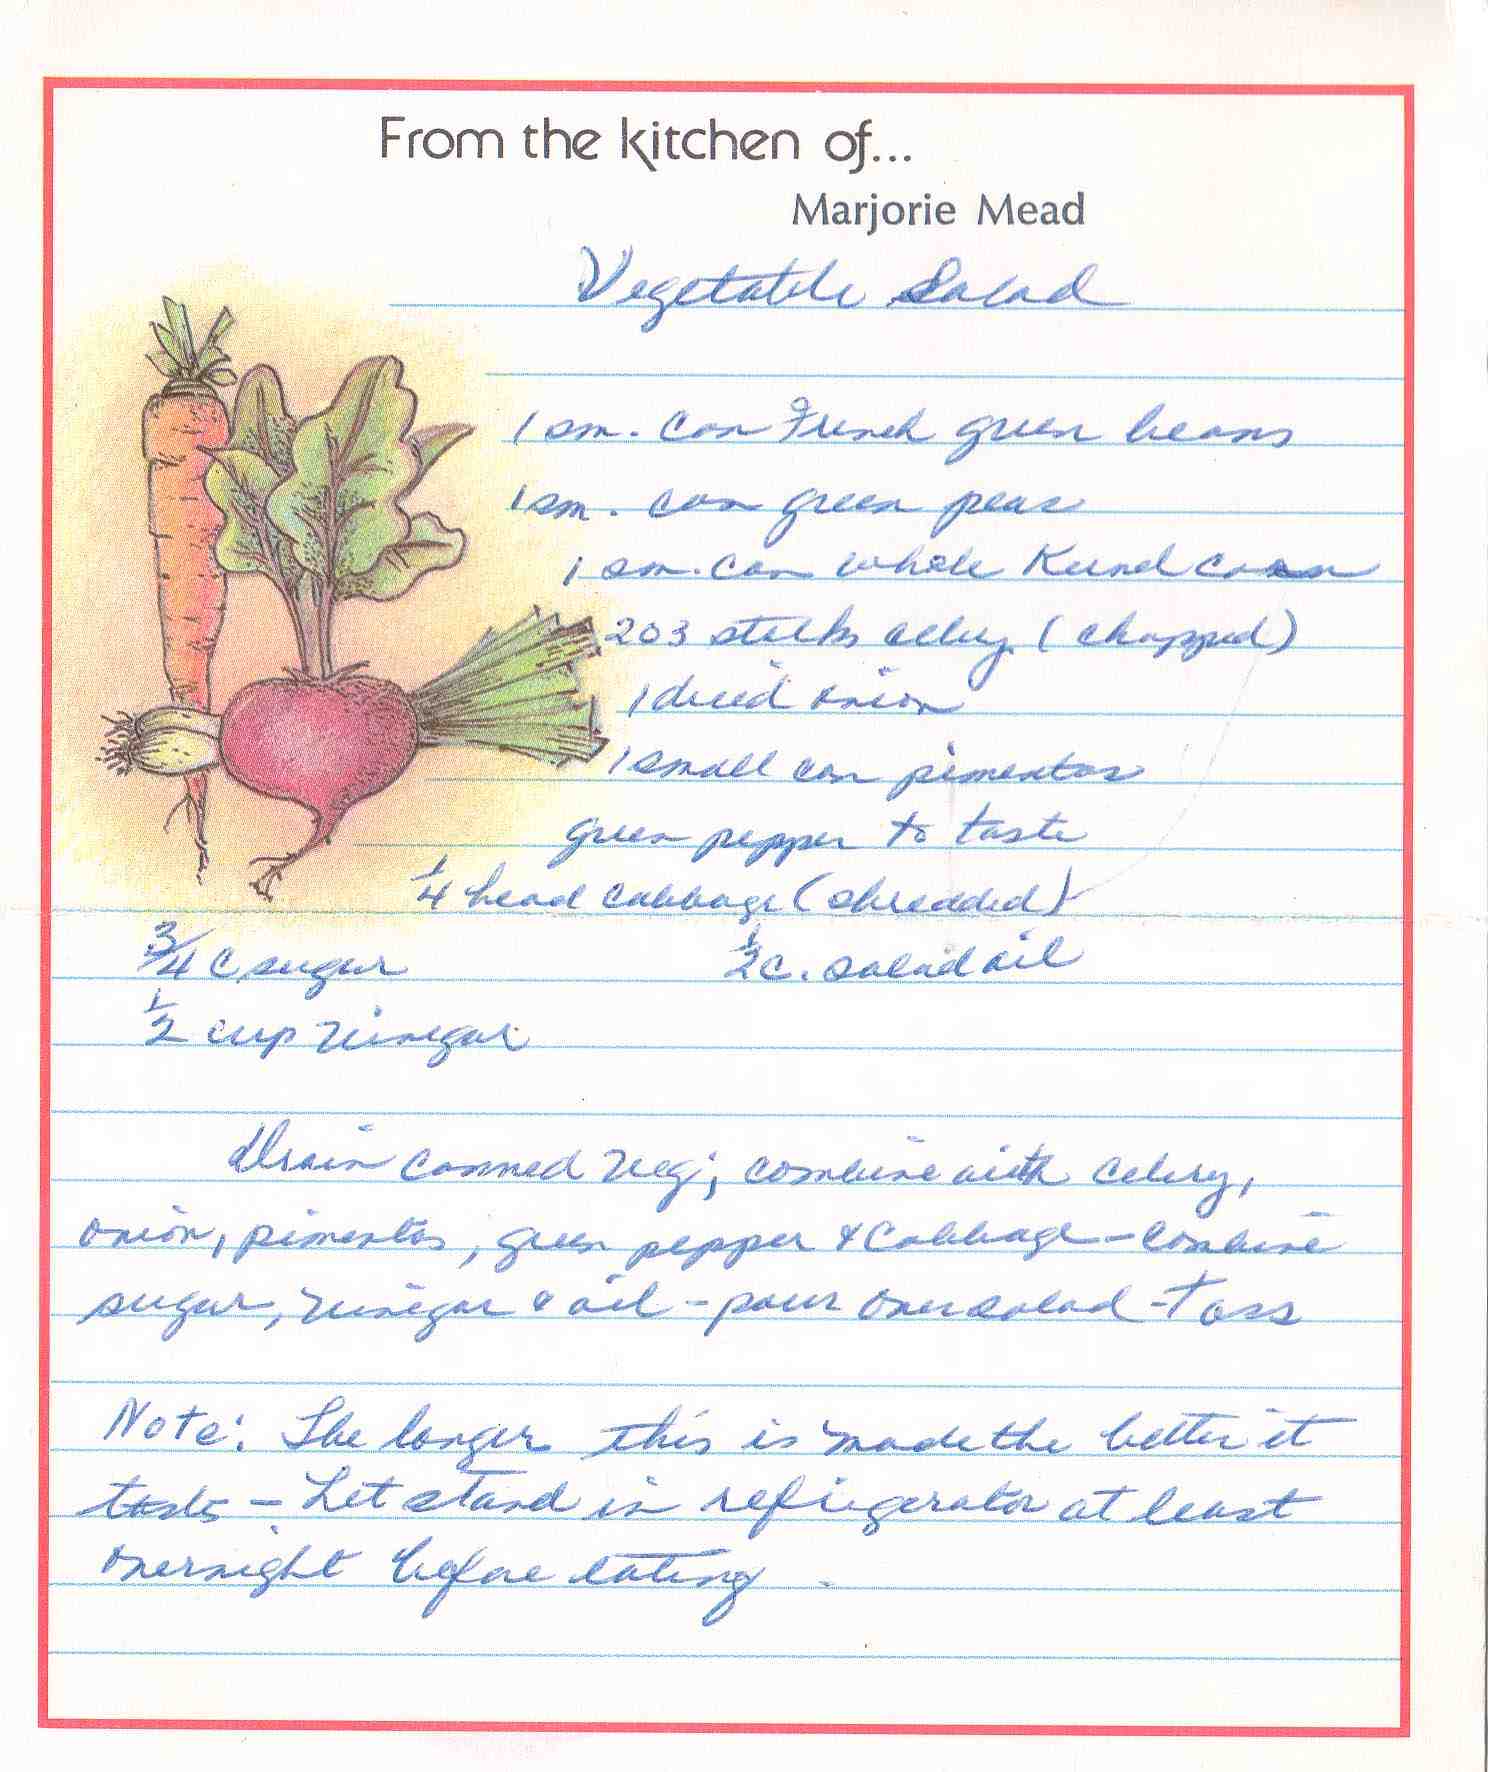 From the kitchen of...
Marjorie Mead
Vegetable Salad
1 sm. can French green beans
1 sm. can green peas
1 sm. can whole Kernel corn
2 or 3 stalks celery (chopped)
1 diced onion
1 small can pimentos
green pepper to taste
1/4 head cabbage (shredded)
3/4 c sugar 1/2 c. salad oil
1/2 cup vinegar
Drain canned veg; combine with celery,
onion, pimentos, green pepper & cabbage - combine
sugar, vinegar & oil - pour over salad - Toss
Note: The longer this is made the better it
tastes - Let stand in refrigerator at least
overnight before eating.